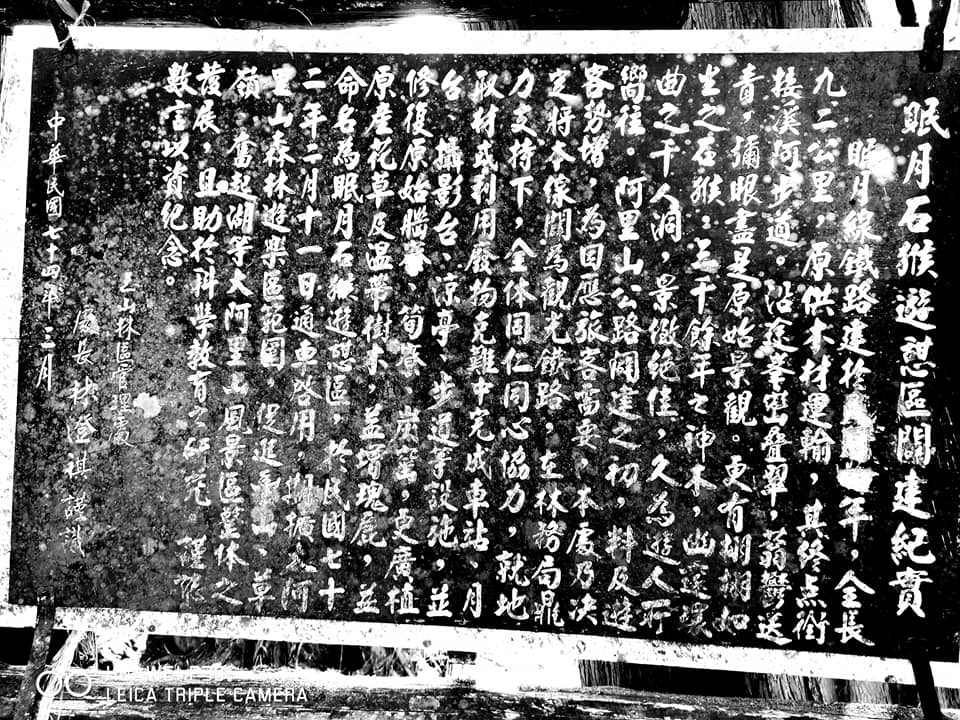 眠月石猴遊憩區闢建紀實
眠月線鐵路建於年,全長
九.二公里,原供木材運輸,其終点銜
接溪河步道。沿途峯巒疊翠,蓊鬱送
青,彌眼盡是原始景觀。更有栩栩如
生之石猴;三千餘年之神木,幽邃
曲之千人洞,景緻絕佳,久為遊人所
嚮往。阿里山公路闢建之初,料及遊
客勢增,為因應旅客需要,本處乃決
定將本線闢為觀光鐵路,在林務局鼎
力支持下,全体同仁同心協力,就地
取材或利用廢物克難中完成車站、月
台、攝影台、涼亭、步道等設施,並
修復原始腦寮、筍寮、炭窯,更廣植
原產花草及温帶樹木,並增瑰麗,並
命名為眠月石猴遊憩區,於民國七十
二年二月十一日通車啓用,期擴大阿
里山森林遊樂區範圍,促進山、草
嶺、奮起湖等大阿里山風景區整体之
發展,且助於科學教育之研究。謹
數言以資紀念。
玉山林區管理處
處長 林澄祺 謹識
中華民國七十四年三月
LEICA TRIPLE CAMERA